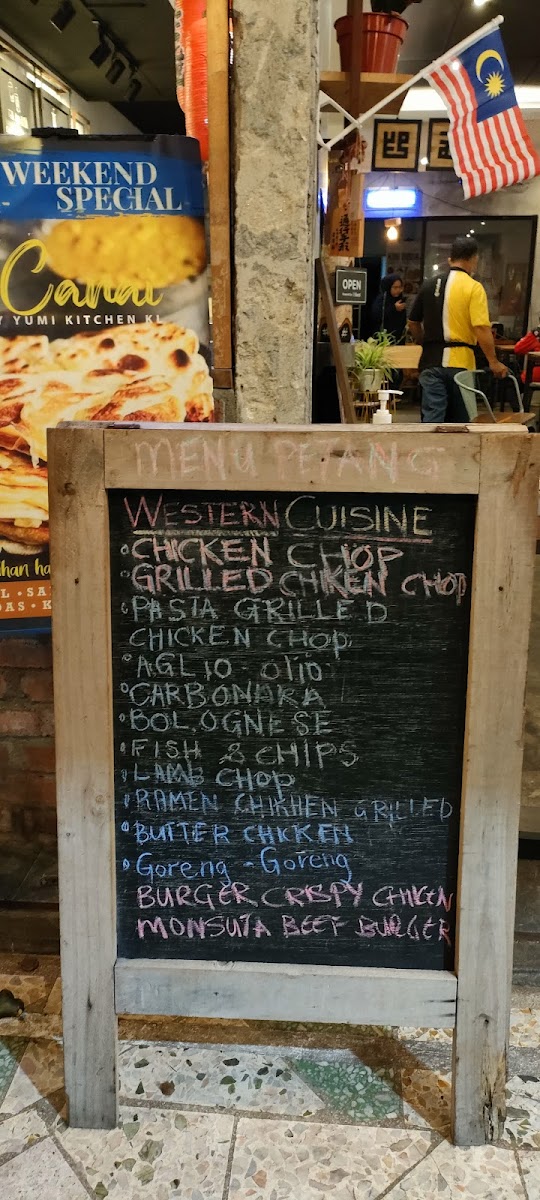 WEEKEND
- SPECIAL
Canai
BY YUMI KITCHEN KL
OPEN
MENU PETANG
WESTERN CUISINE
CHICKEN CHOP
GRILLED CHIKEN CHOP
PASTA GRILLED
CHICKEN CHOP
AGLIO-OLIO
CARBONARA
BOLOGNESE
FISH & CHIPS
LAMB CHOP
RAMEN CHIKHEN GRILLED
BUTTER CHICKEN
Goreng-Goreng
BURGER CRISPY CHIKEN
MONSUTA BEEF BURGER